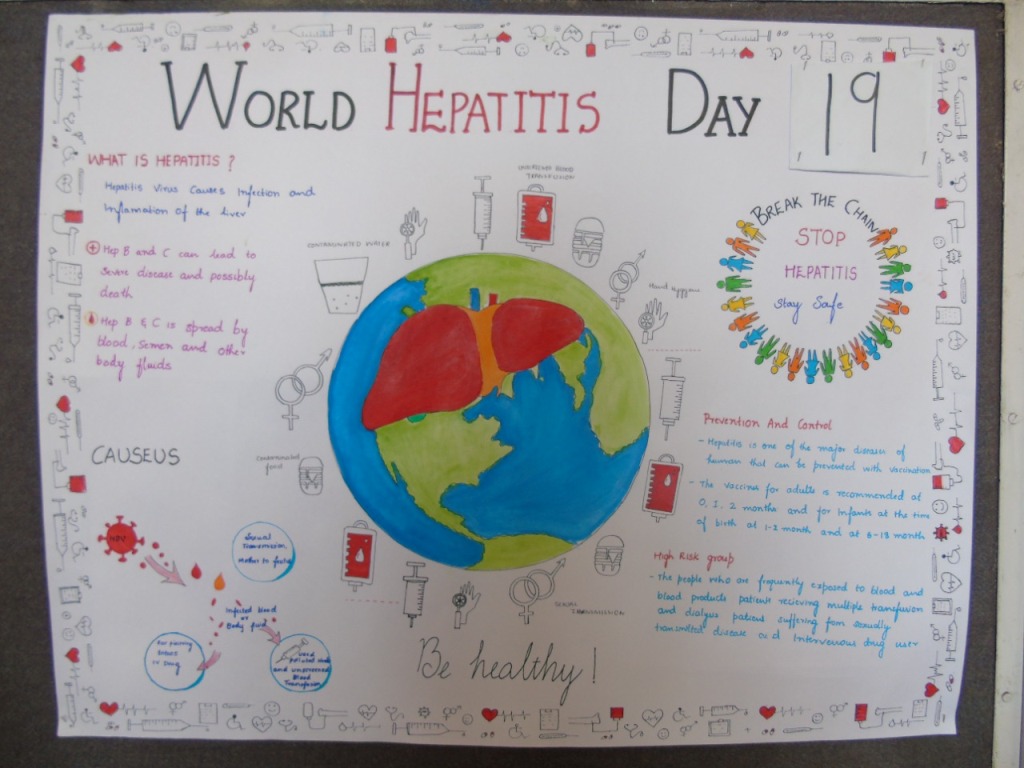 WORLD HEPATITIS DAY
19
WHAT IS HEPATITIS ?
Hepatitis Virus Causes Infection and
Inflamation of the liver
Hep B and C can lead to
severe disease and possibly
death
Hep B & C is spread by
blood, Semen and other
body fluids
CAUSEUS
HPV
Sexual
Transmission
Mother to
Infected blood
or
Body fluid
or Drug
and unprocessed
Blood
Transfusion
CONTAMINATED WATER
BLOOD
TRANSFUSION
Hand hygiene
Contaminated
food
SEXUAL
TRANSMISSION
Be healthy!
BREAK THE CHAIN
STOP
HEPATITIS
Stay Safe
Prevention And Control
- Hepatitis is one of the major diseases of
human that can be prevented with vaccination
- The vaccines for adults is recommended at
0, 1, 2 months and for Infants at the time
of birth at 1-2 month and at 6-18 month
High Risk group
- The people who are frequently exposed to blood and
blood products patient recieving multiple transfusion
and dialysis patient suffering from sexually
transmitted disease and Intervenous drug user